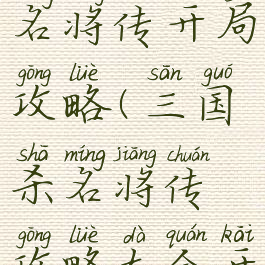 名将传开局
gōng lüè sān guó
攻略(三国
shā míng jiāng chuán
杀名将传
gōng lüè dà quán kāi
攻略大全开